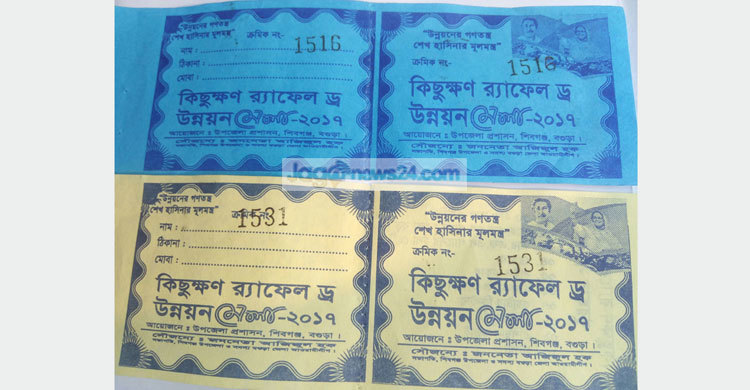 "উন্নয়নের গণতন্ত্র
শেখ হাসিনার মূলমন্ত্র"
ক্রমিক নং- 1516
নাম :
ঠিকানা :
মোবা :
কিছুক্ষণ র‍্যাফেল ড্র
উন্নয়ন মেলা-২০১৭
আয়োজনে : উপজেলা প্রশাসন, শিবগঞ্জ, বগুড়া ।
সৌজন্যে : জননেতা আজিজুল হক
"উন্নয়নের গণতন্ত্র
শেখ হাসিনার মূলমন্ত্র"
ক্রমিক নং- 1516
কিছুক্ষণ র‍্যাফেল ড্র
উন্নয়ন মেলা-২০১৭
আয়োজনে : উপজেলা প্রশাসন, শিবগঞ্জ, বগুড়া ।
সৌজন্যে : জননেতা আজিজুল হক
Jagonews24.com
"উন্নয়নের গণতন্ত্র
শেখ হাসিনার মূলমন্ত্র"
ক্রমিক নং- 1531
নাম :
ঠিকানা :
মোবা :
কিছুক্ষণ র‍্যাফেল ড্র
উন্নয়ন মেলা-২০১৭
আয়োজনে : উপজেলা প্রশাসন, শিবগঞ্জ, বগুড়া ।
সৌজন্যে : জননেতা আজিজুল হক
"উন্নয়নের গণতন্ত্র
শেখ হাসিনার মূলমন্ত্র"
ক্রমিক নং- 1531
কিছুক্ষণ র‍্যাফেল ড্র
উন্নয়ন মেলা-২০১৭
আয়োজনে : উপজেলা প্রশাসন, শিবগঞ্জ, বগুড়া ।
সৌজন্যে : জননেতা আজিজুল হক